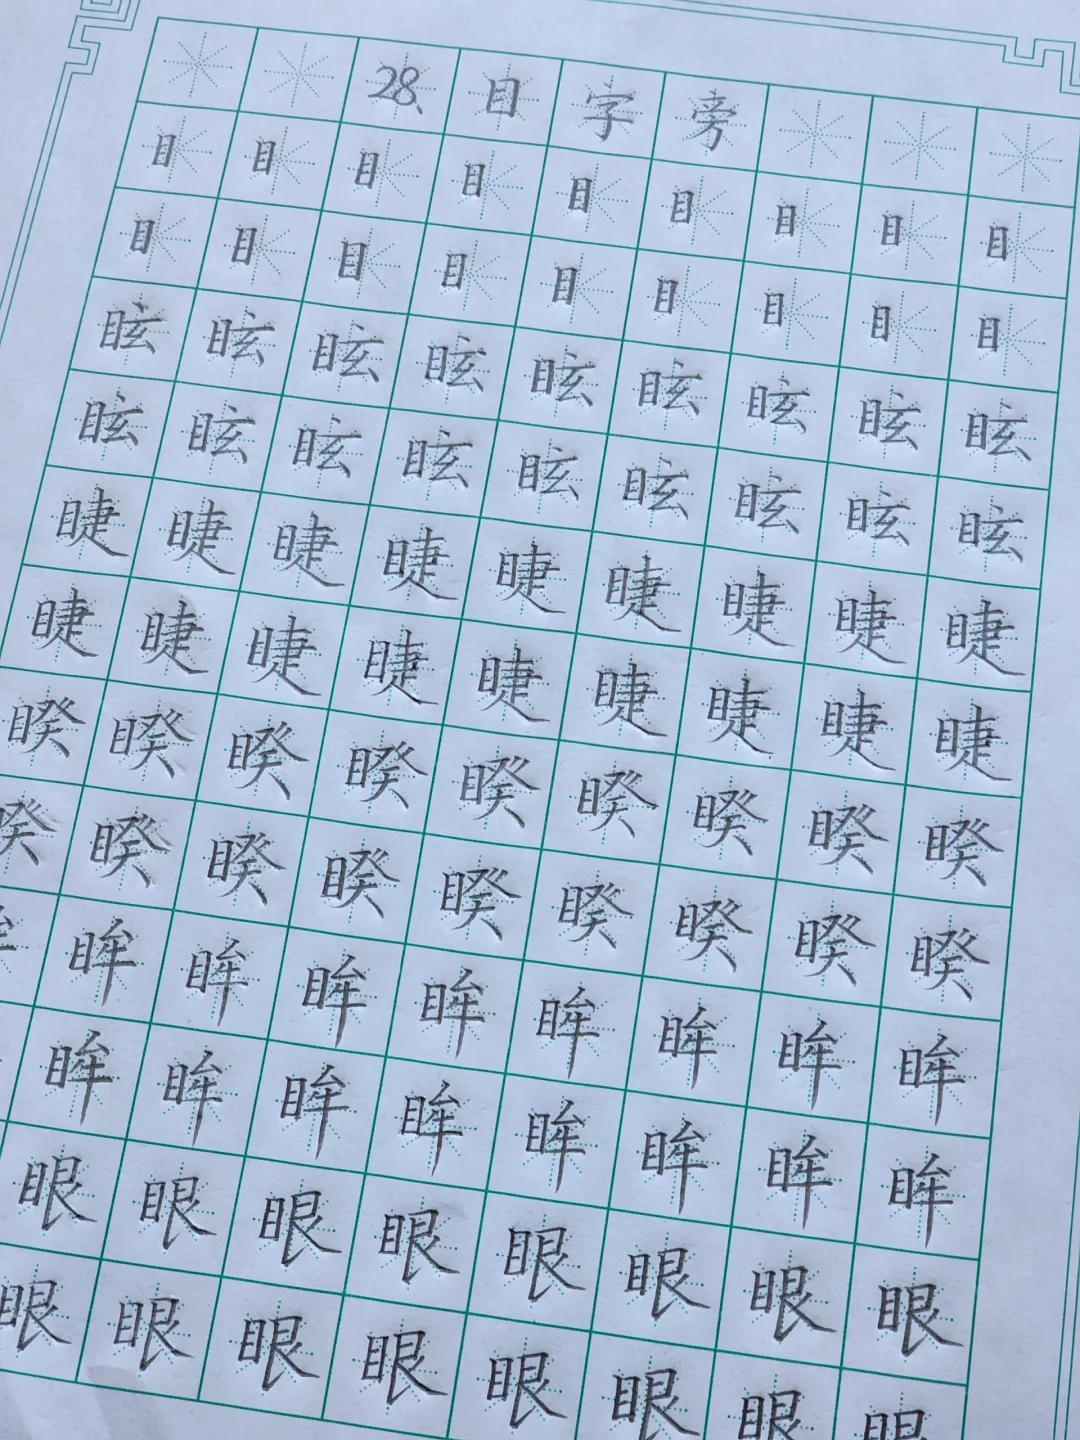 28、目字旁
目目目目目目目目目
目目目目目目目目目
眩眩眩眩眩眩眩眩眩
眩眩眩眩眩眩眩眩眩
睫睫睫睫睫睫睫睫睫
睫睫睫睫睫睫睫睫睫
睽睽睽睽睽睽睽睽睽
睽睽睽睽睽睽睽睽睽
眸眸眸眸眸眸眸眸
眸眸眸眸眸眸眸眸
眼眼眼眼眼眼眼眼
眼眼眼眼眼眼眼眼